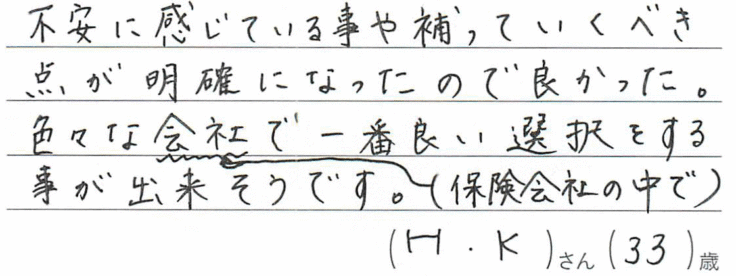 不安に感じている事や補っていくべき
点が明確になったので良かった。
色々な会社で一番良い選択をする
事が出来そうです。(保険会社の中で)
(H.K)さん(33)歳